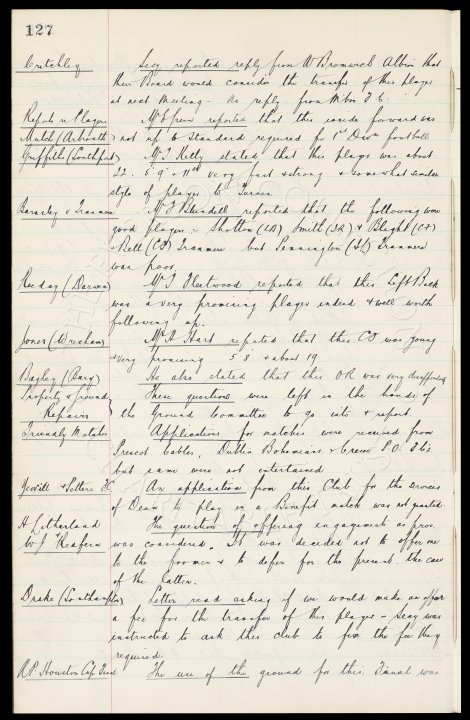 127
Critchley
Secy reported reply from W Bromwich Albion that
their Board would consider the transfer of this player
at next Meeting - No reply from Mbro F C.
Reports re Players
Mutch (Arbroath)
Mr E Green reported that this inside forward was
not up to standard required for 1st Divn football
Griffiths (Southport)
Mr T Kelly stated that this player was about
22 . 5' 9" - 11 st very fast & strong & somewhat similar
style of player to Turner.
Barnsley v Tranmere
Mr J Blundell reported that the following were
good players :- Shotton (LB) Smith (IR) & Blight (CF)
& Bell (CF) Tranmere but Pennington (IL) Tranmere
was poor.
(Darwen)
Mr J Fleetwood reported that this Left Back
was a very promising player indeed & well worth
following up.
Jones (Wrexham)
Mr A Hart reported that this CF was young
& very promising 5' 8 & about 19
Bagley (Bury)
He also stated that this OR was very disappointing
Property & Ground
Repairs
These questions were left in the hands of
the Ground Committee to go into & report.
Friendly Matches
Applications for matches were received from
Prescot Cables, Dublin Bohemians & Crewe P.O. F C
but same were not entertained
Yeovil & Petters FC
An application from this Club for the services
of Dean to play in a Benefit match was not granted.
H Litherland
W J
The question of offering engagement as pros.
was considered. It was decided not to offer one
to the former & to defer for the present the case
of the latter.
Drake (Southampton)
Letter read asking if we would make an offer
a fee for the transfer of this player - Secy was
instructed to ask this club to fix the fee they
required.
R P Houston Cup Final
The use of the ground for this Final was